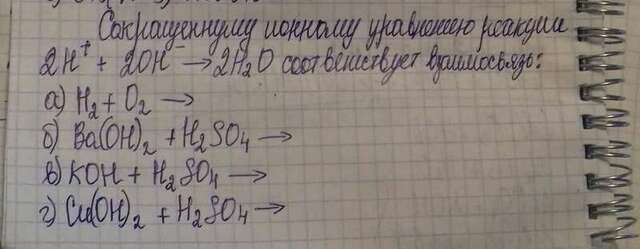 Сокращенному ионному уравнению реакции
2H⁺ + 2OH⁻ → 2H₂O соответствует взаимосвязь:
а) H₂ + O₂ →
б) Ba(OH)₂ + H₂SO₄ →
в) KOH + H₂SO₄ →
г) Cu(OH)₂ + H₂SO₄ →